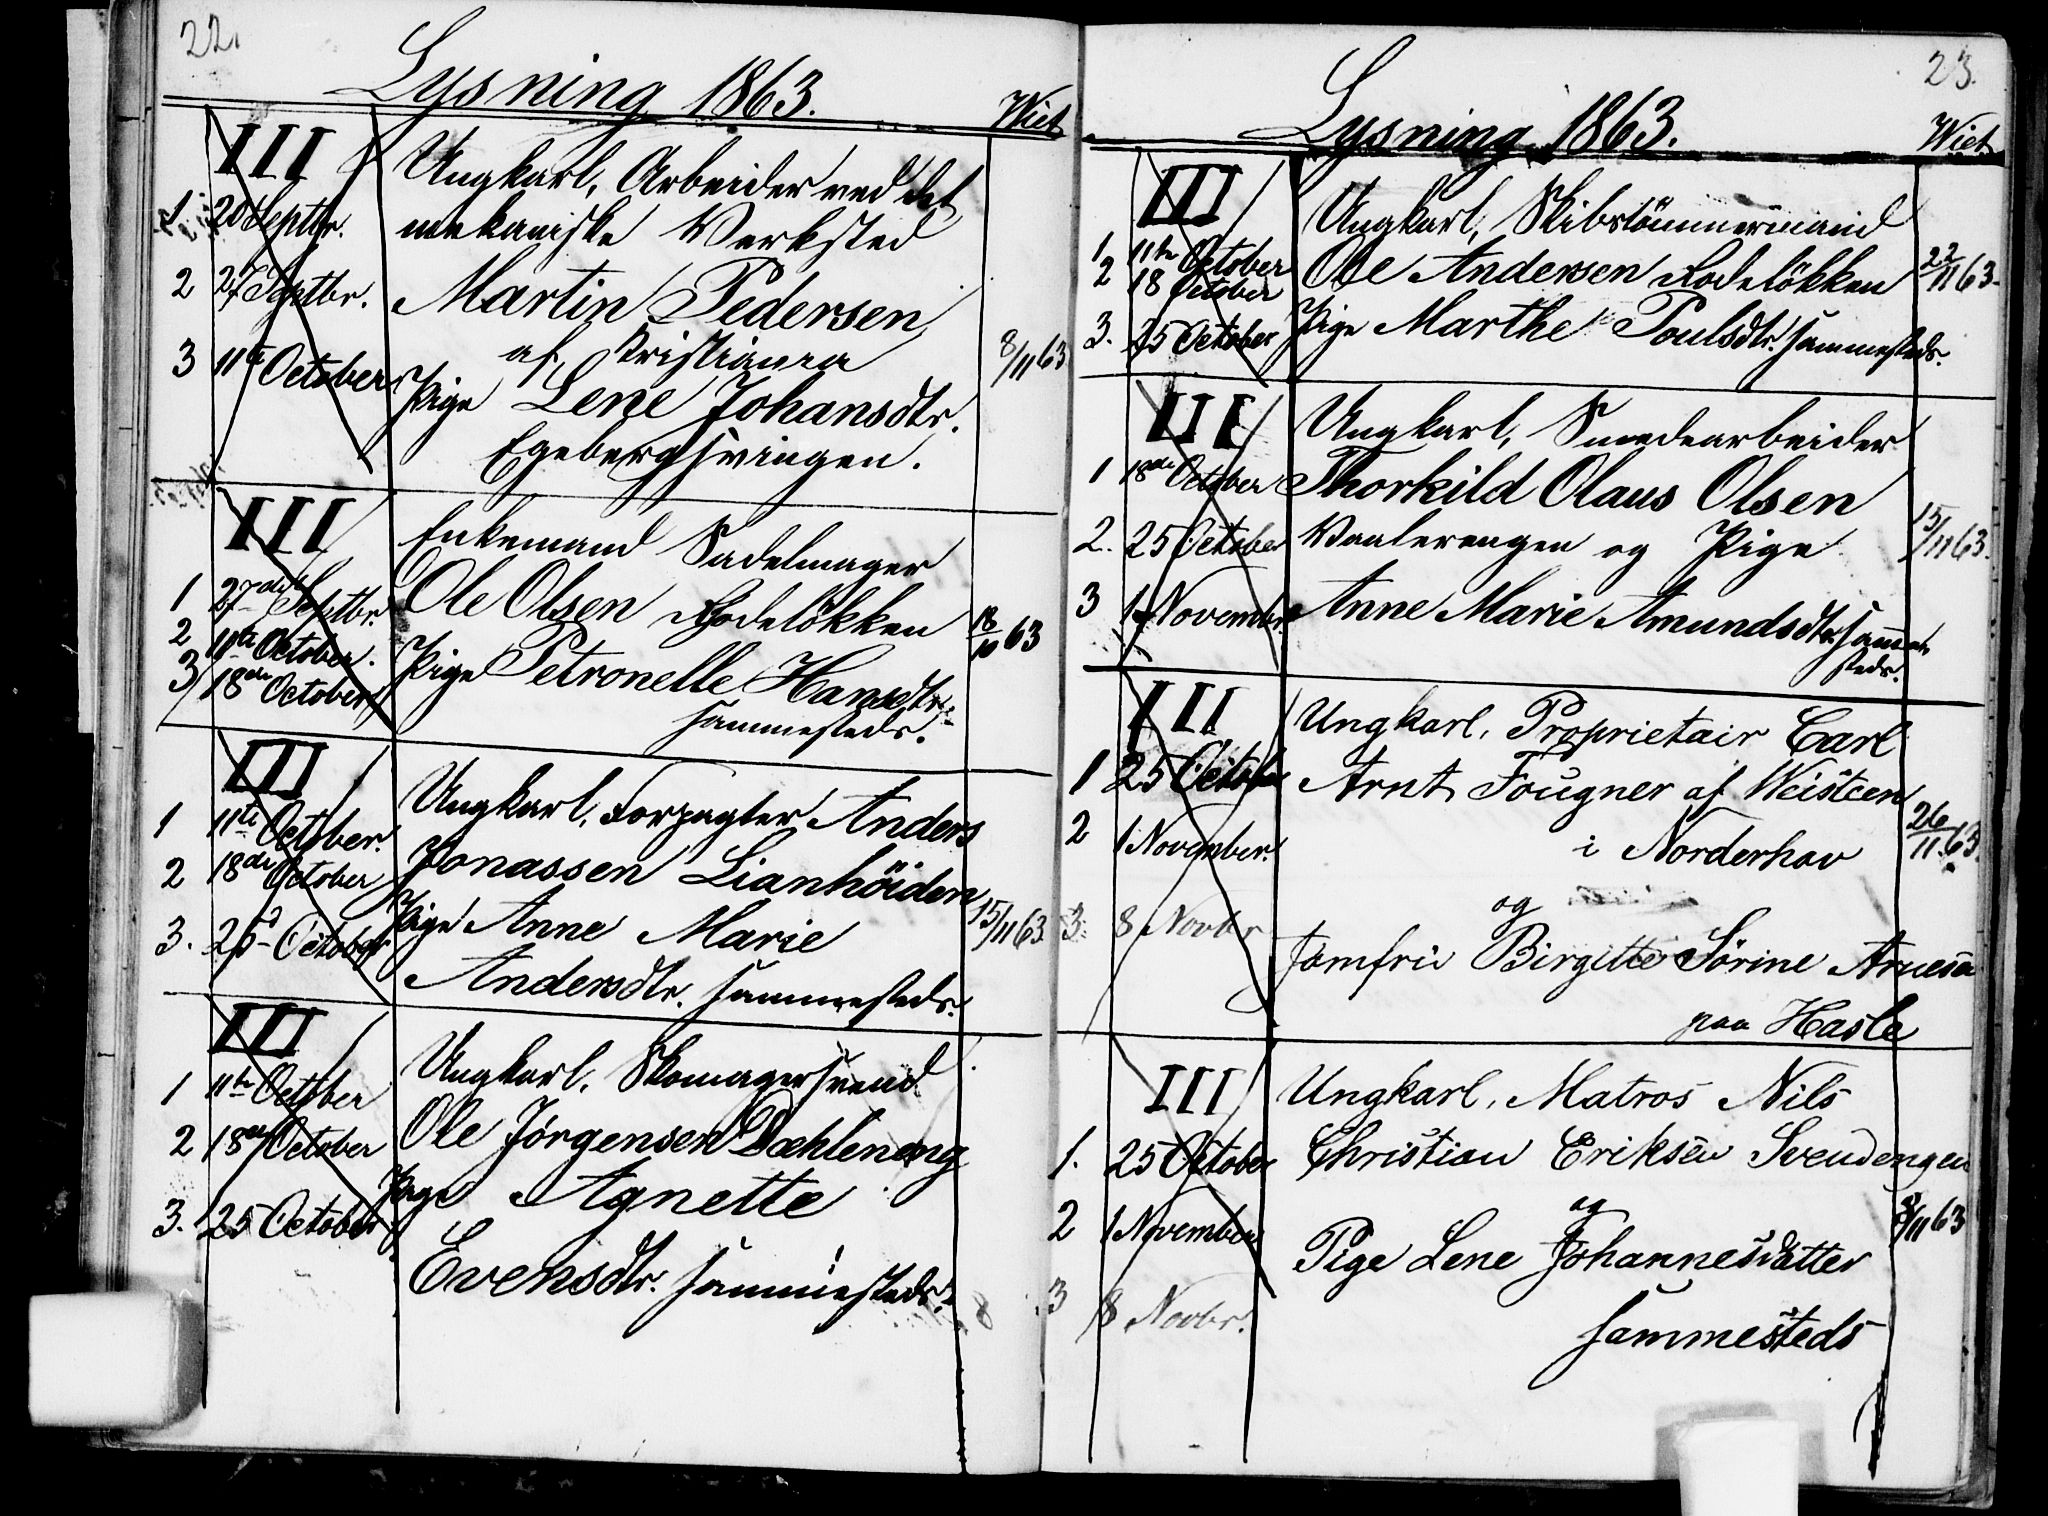 22.
Lysning 1863.
Wiet
III
1 20 Septbr.
2 27 Septbr.
3 11te October
Ungkarl, Arbeider ved det
mekaniske Verksted
Martin Pedersen
af Kristiania
Pige Lene Johansdtr.
Egebergsvingen.
8/11 63
III
1 27de Septbr.
2 11te October.
3 18de October
Enkemand Sadelmager
Ole Olsen Rodeløkken
Pige Petronelle Hansdtr.
sammesteds.
18/10 63
III
1 11te October.
2 18de October
3. 25d October
Ungkarl, Forpagter Anders
Jonassen Lianhöiden
Pige Anne Marie
Andersdtr. sammesteds.
15/11 63
III
1 11te October
2 18de October
3. 25 October
Ungkarl, Skomagersvend
Ole Jørgensen Dæhleneng
Pige Agnette
Evensdtr. sammesteds.
8
23.
Lysning 1863.
Wiet
III
1 11te October
2 18 October
3. 25 October
Ungkarl, Skibstömmermand
Ole Andersen Rodelökken
Pige Marthe Poulsdtr. sammesteds.
22/11 63
III
1 18de October
2. 25 October
3 1 November
Ungkarl, Smedearbeider
Thorkild Olaus Olsen
Vaalerengen og Pige
Anne Marie Amundsdtr. samme
steds.
15/11 63.
III
1 25 October
2 1 November.
3. 8 Novbr
Ungkarl, Proprietair Carl
Arnt Fougner af Weisteen
i Norderhov
og
Jomfru Birgitte Sörine Arnesen
paa Hasle
26/11 63.
III
1. 25 October
2 1 November
3 8 Novbr.
Ungkarl, Matros Nils
Christian Eriksen Svendengen
og
Pige Lene Johannesdatter
sammesteds
8/11 63